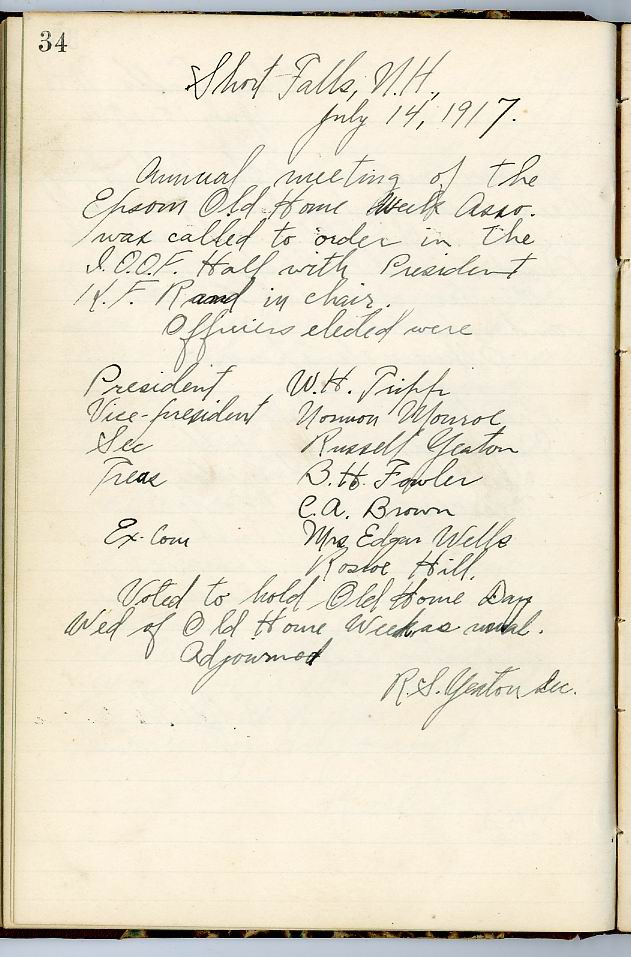 34
Short Falls, N.H.,
July 14, 1917.
Annual meeting of the
Epsom Old Home Week Asso.
was called to order in the
I.O.O.F. Hall with President
H.F. Rand in chair.
Officers elected were
President W.H. Tripp
Vice-president Norman Monroe
Sec Russell Yeaton
Treas B.H. Fowler
C.A. Brown
Ex-Com Mrs Edgar Wells
Roscoe Hill.
Voted to hold Old Home Day
Wed of Old Home Week as usual.
Adjourned
R.S. Yeaton Sec.